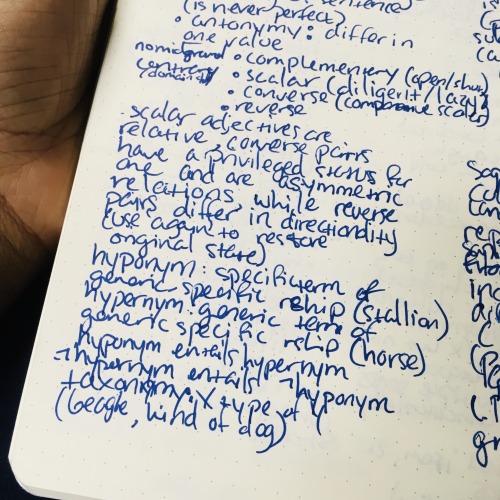 sentence
(is never perfect)
• antonymy: differ in
one value
• complementery (open/shut)
• scalar (diligent/lazy)
• converse (comparative scalar)
• reverse
contrary
scalar adjectives are
relative, converse pairs
have a privileged status for
one and are asymmetric
relations, while reverse
pairs differ in directionality
(use again to restore
original state)
hyponym: specific term of
generic specific rship (stallion)
hypernym: generic term of
generic specific rship (horse)
hyponym entails hypernym
¬hypernym entails ¬hyponym
taxonymy: X type of Y
(beagle, kind of dog)